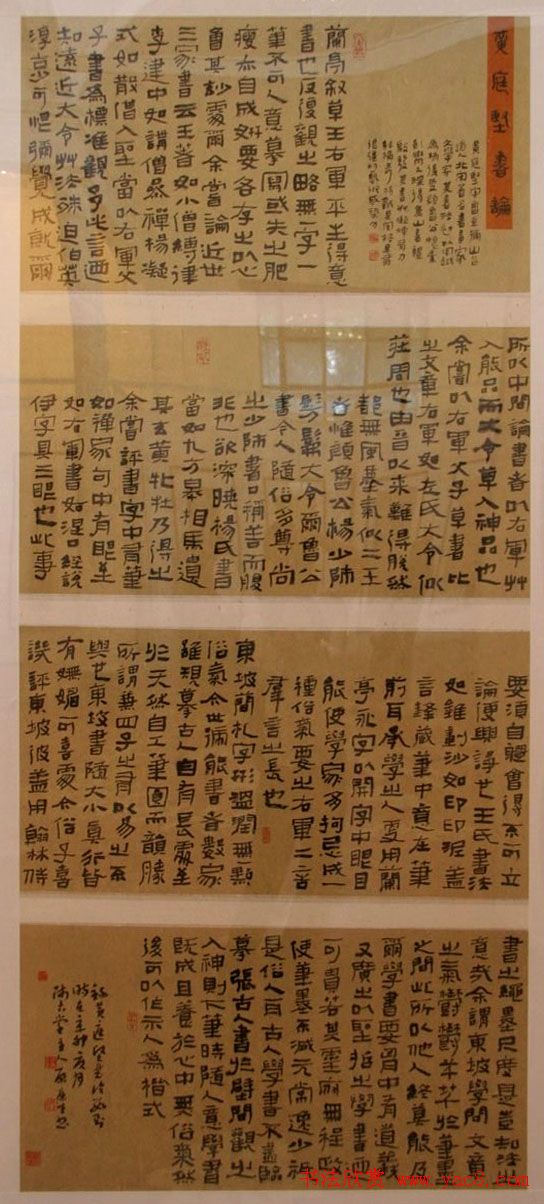 黄庭堅書論
蘭亭叙草王右軍平生得意
書也反復觀之略無一字一
筆不可人意摹寫或失之肥
瘦亦自成妍要各存之以心
會其妙處爾余嘗論近世
三家書云王著如小僧縛律
李建中如講僧參禪楊凝
式如散僧入聖當以右軍父
子書為標准觀予此言廼
知遠近大令艸法殊迫伯英
淳古可恨彌覺成就爾
所以中間論書者以右軍艸
入能品而大令草入神品也
余嘗以右軍父子草書比
之文章右軍如左氏大令似
莊周也由晉以來難得脫然
都無風塵氣似二王
者惟顏魯公楊少師
髣髴大令爾魯公
書今人隨俗多尊尚
之少師書口稱善而腹
非也欲深曉楊氏書
當如九方皋相馬遺
其玄黃牝牡乃得之
余嘗評書字中有筆
如禪家句中有眼至
如右軍書如涅槃經說
伊字具三眼也此事
要須自體會得不可立
論便興諍也王氏書法
如錐劃沙如印印泥蓋
言鋒藏筆中意在筆
前耳承學之人更用蘭
亭永字以開字中眼目
能使學家多拘忌成一
種俗氣要之右軍二言
群言之長也
東坡簡札字形溫潤無一點
俗氣今世號能書者數家
雖規摹古人自有長處至
於天然自工筆圓而韻勝
所謂兼四子之有以易之不
與也東坡書隨大小真行皆
有嫵媚可喜處今俗子喜
譏評東坡彼蓋用翰林侍
書之繩墨尺度是豈知法之
意哉余謂東坡學問文章
之氣鬱鬱芊芊於筆墨
之間此所以他人終莫能及
爾學書要胸中有道義
又廣之以聖哲之學書乃
可貴若其靈府無程政
使筆墨不減元常逸少祗
是俗人耳古人學書不盡臨
摹張古人書於壁間觀之
入神則下筆時隨人意學書
既成且養於心中無俗氣然
後可以作示人為楷式
书法欣赏 www.yac8.com